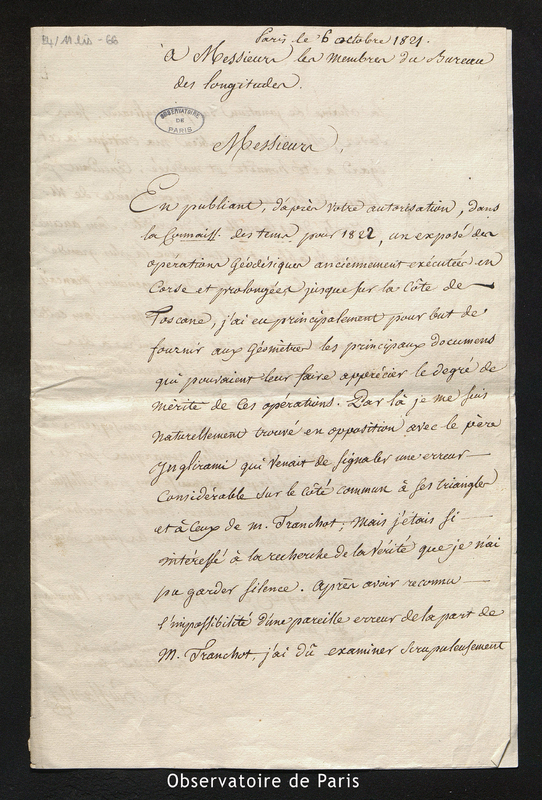 Paris le 6 octobre 1821.
A Messieurs les membres du Bureau
des longitudes.
OBSERVATOIRE
DE
PARIS
Messieurs,
En publiant, d'après votre autorisation, dans
la Connaiss. des tems pour 1822, un exposé des
opérations Géodésiques anciennement exécutées en
Corse et prolongées jusque sur la Côte de
Toscane, j'ai eu principalement pour but de
fournir aux Géomètres les principaux documens
qui pouvaient leur faire apprécier le degré de
mérite de ces opérations. Par là je me suis
naturellement trouvé en opposition avec le père
Inghirami qui venait de signaler une erreur
considérable sur le côté commun à ses triangles
et à ceux de M. Tranchot; mais j'étais si
intéressé à la recherche de la vérité que je n'ai
pu garder silence. Après avoir reconnu
l'impossibilité d'une pareille erreur de la part de
M. Tranchot, j'ai dû examiner scrupuleusement
Observatoire de Paris